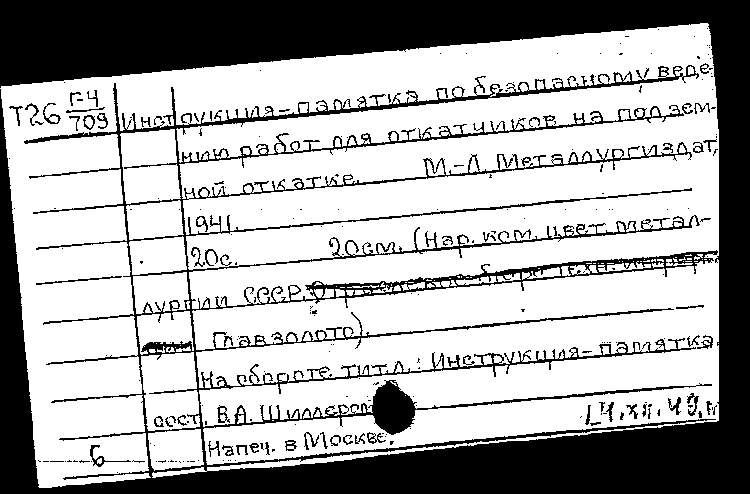 Т26 Г-4
709
Инструкция-памятка по безопасному веде-
нию работ для откатчиков на подзем-
ной откатке. М.-Л. Металлургиздат,
1941.
20с. 20см. (Нар. ком. цвет. метал-
лургии СССР. Отраслевое бюро техн. информ.
Главзолото).
На обороте тит.л.: Инструкция-памятка.
сост. В.А. Шиллером
Напеч. в Москве.
Б